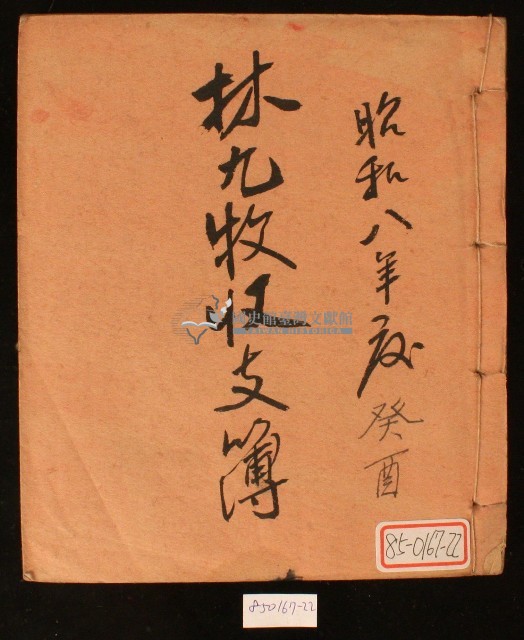 昭和八年度 癸酉
林九牧收支簿
國史館臺灣文獻館
TAIWAN HISTORICA
85-0167-22
850167-22